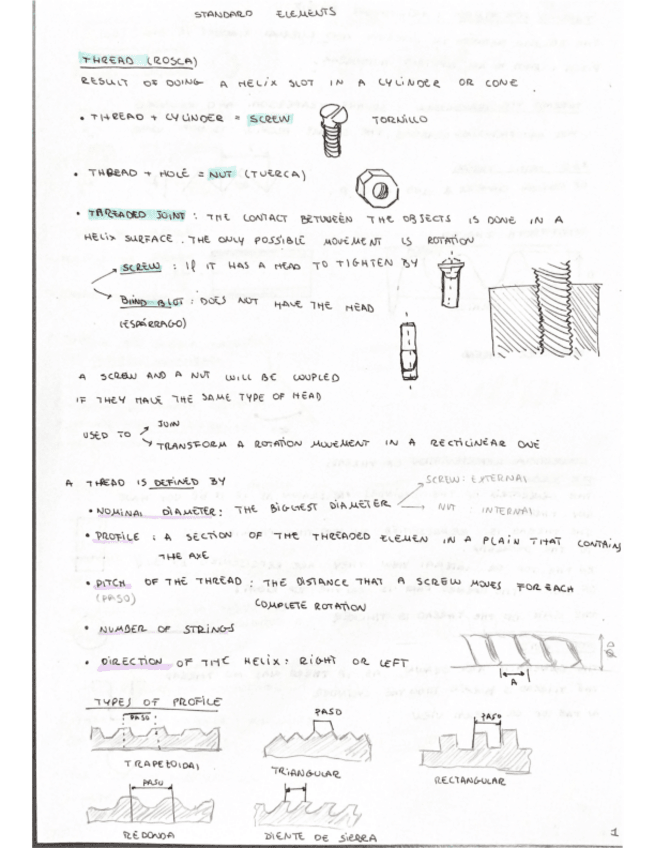 STANDARD ELEMENTS
THREAD (ROSCA)
RESULT OF DOING A HELIX SLOT IN A CYLINDER OR CONE.
• THREAD + CYLINDER = SCREW TORNILLO
• THREAD + HOLE = NUT (TUERCA)
• THREADED JOINT : THE CONTACT BETWEEN THE OBJECTS IS DONE IN A
HELIX SURFACE. THE ONLY POSSIBLE MOVEMENT IS ROTATION
SCREW : IF IT HAS A HEAD TO TIGHTEN BY
BIND BLOT : DOES NOT HAVE THE HEAD
(ESPÁRRAGO)
A SCREW AND A NUT WILL BE COUPLED
IF THEY HAVE THE SAME TYPE OF HEAD
USED TO JOIN
TRANSFORM A ROTATION MOVEMENT IN A RECTILINEAR ONE
A THREAD IS DEFINED BY
SCREW: EXTERNAL
• NOMINAL DIAMETER: THE BIGGEST DIAMETER
NUT : INTERNAL
• PROFILE : A SECTION OF THE THREADED ELEMEN IN A PLAIN THAT CONTAINS
THE AXE
• PITCH OF THE THREAD : THE DISTANCE THAT A SCREW MOVES FOR EACH
(PASO) COMPLETE ROTATION
• NUMBER OF STRINGS
• DIRECTION OF THE HELIX: RIGHT OR LEFT
ØD
A
TYPES OF PROFILE
PASO PASO PASO
TRAPEZOIDAL TRIANGULAR RECTANGULAR
PASO
REDONDA DIENTE DE SIERRA
1